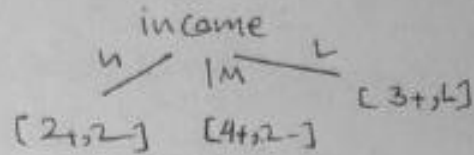 income
H M L
[2+,2-] [4+,2-] [3+,L]